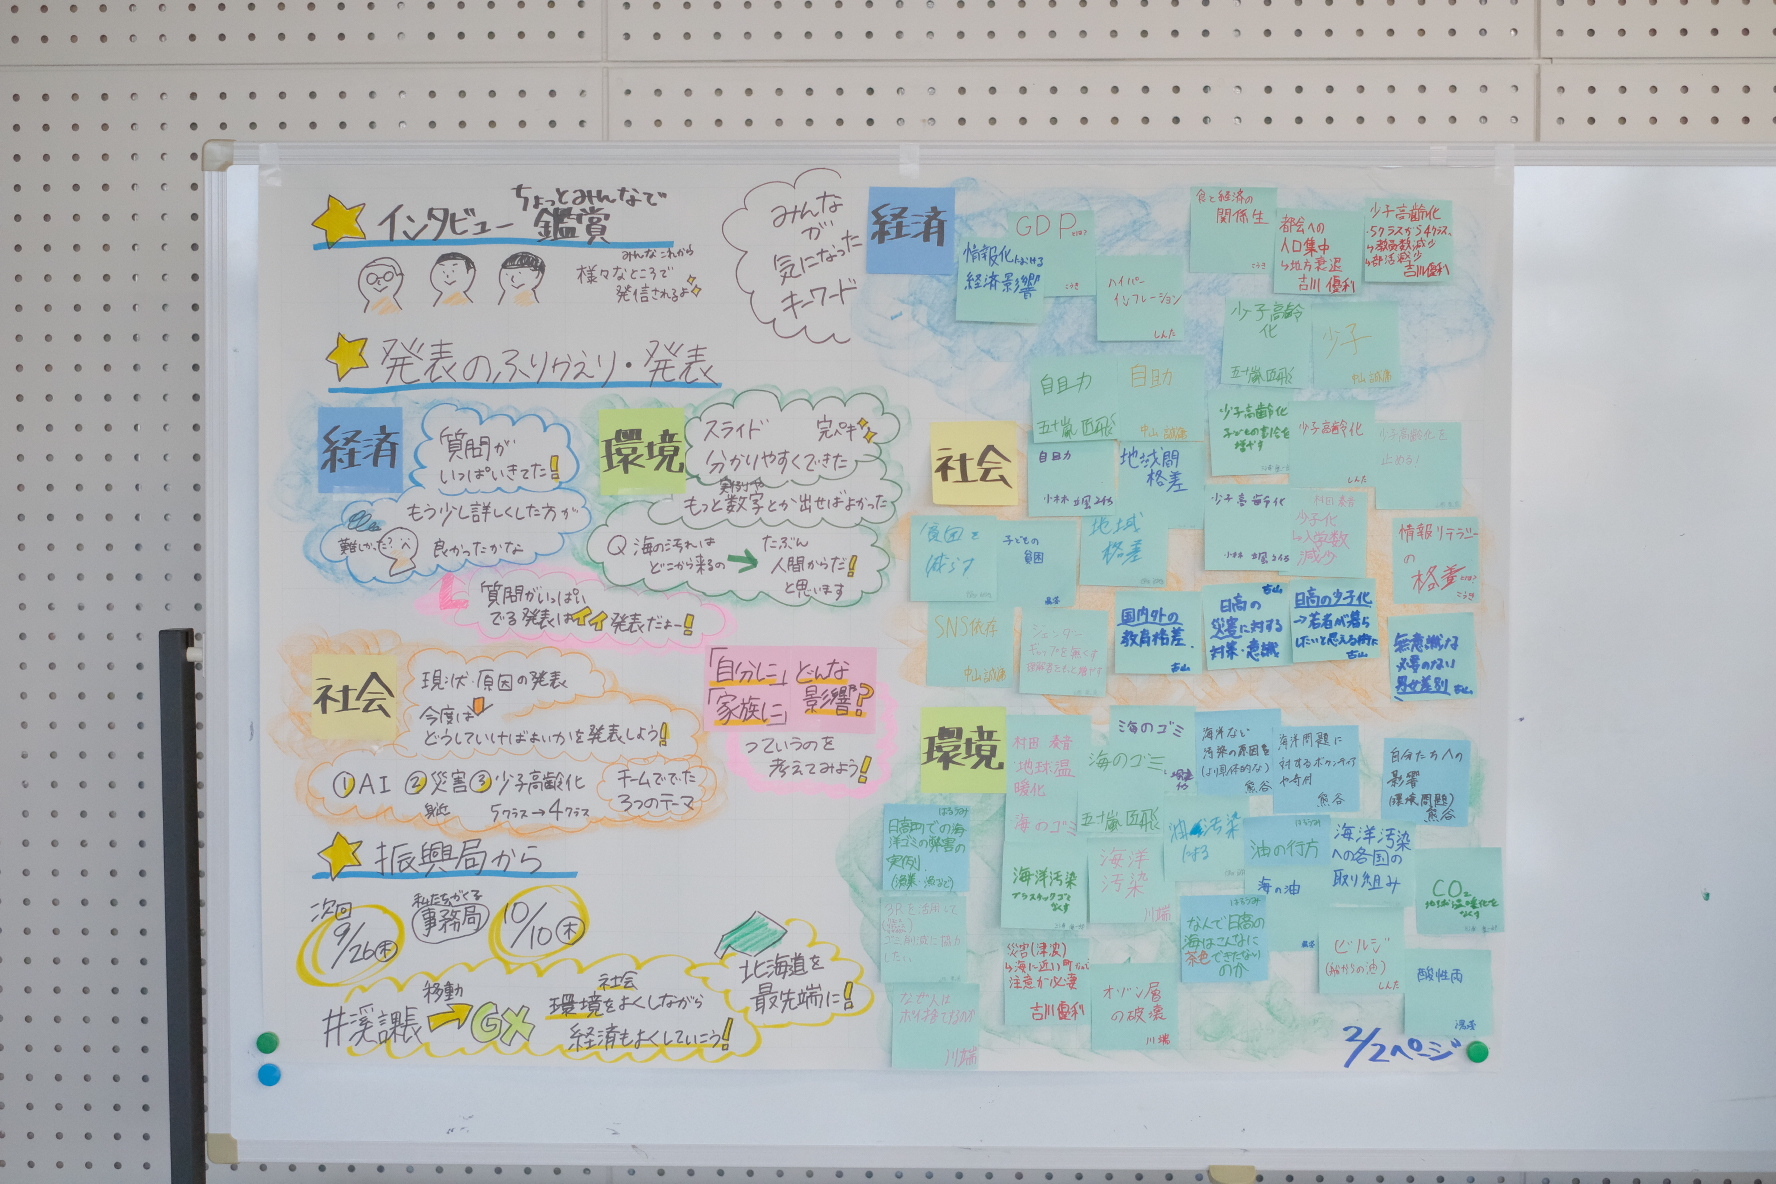 ちょっとみんなで
インタビュー鑑賞
みんなこれから
様々なところで
発信されるよ
発表のふりかえり・発表
経済
質問が
いっぱいきてた!
もう少し詳しくした方が
良かったかな
難しかった?
環境
スライド 完ペキ
分かりやすくできた
実例や
もっと数字とか出せばよかった
Q 海の汚れは
どこから来るの
たぶん
人間からだ!
と思います
質問がいっぱい
でる発表はイイ発表だよー!
社会
現状・原因の発表
今度は
どうしていけばよいかを発表しよう!
①AI ②災害 ③少子高齢化
身近
5クラス→4クラス
チームででた
3つのテーマ
「自分に」どんな
「家族に」影響?
っていうのを
考えてみよう!
振興局から
次回
9/26木
私たちがくる
事務局
10/10木
井溪課長
移動
GX
社会
環境をよくしながら
経済もよくしていこう!
北海道を
最先端に!
みんな
が
気になった
キーワード
経済
GDPとは?
こうき
情報化における
経済影響
ハイパー
インフレーション
しんた
食と経済の
関係生
こうき
都会への
人口集中
↳地方衰退
吉川優利
少子高齢化
・5クラスから4クラス
↳教員数減少
↳部活減少
吉川優利
少子高齢
化
五十嵐匠飛
少子
中山誠藤
自助
五十嵐匠飛
自助
中山誠藤
少子高齢化
子どもの割合を
増やす
少子高齢化
しんた
少子高齢化を
止める!
社会
自助
地域間
格差
少子高齢化
村田奏音
少子化
↳入学数
減少
情報リテラシー
の
格差とは?
こうき
貧困を
減らす
子どもの
貧困
熊谷
地域
格差
SNS依存
中山誠藤
ジェンダー
ギャップを無くす
国内外の
教育格差.
古山
古山
日高の
災害に対する
対策・意識
日高の少子化
→若者が暮ら
したいと思える街に
古山
無意識な
必要のない
男女差別
古山
環境
村田奏音
地球温
暖化
海のゴミ
海のゴミ
五十嵐匠飛
海洋など
汚染の原因を
(より具体的な)
熊谷
海洋問題に
対するボランティア
や寄付
熊谷
自分たちへの
影響
(環境問題)
熊谷
はるうみ
日高町での海
洋ゴミの弊害の
実例.
(漁業・波など)
海のゴミ
海洋汚染
プラスチックゴミ
なくす
海洋
汚染
川端
油汚染
による
はるうみ
油の行方
海の油
熊谷
海洋汚染
への各国の
取り組み
CO₂
地球温暖化を
なくす
3Rを活用して
ゴミ削減に協力
したい。
災害(津波)
↳海に近い町なので
注意が必要
吉川優利
はるうみ
なんで日高の
海はこんなに
茶色できたないの
のか
ビルジ
(船からの油)
しんた
酸性雨
なぜ人は
ポイ捨てするのか
川端
オゾン層
の破壊
川端
2/2ページ